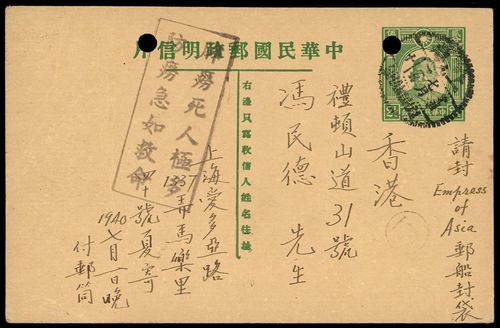 中華民國郵政明信片
右邊只寫收信人姓名住址
癆病死人極多
防癆急如救命
請封 Empress of Asia 郵船封袋
香港
禮頓山道31號
馮民德 先生
上海愛多亞路
1337青馬樂里
四十號夏寄
1940 七月一日晚
付郵筒